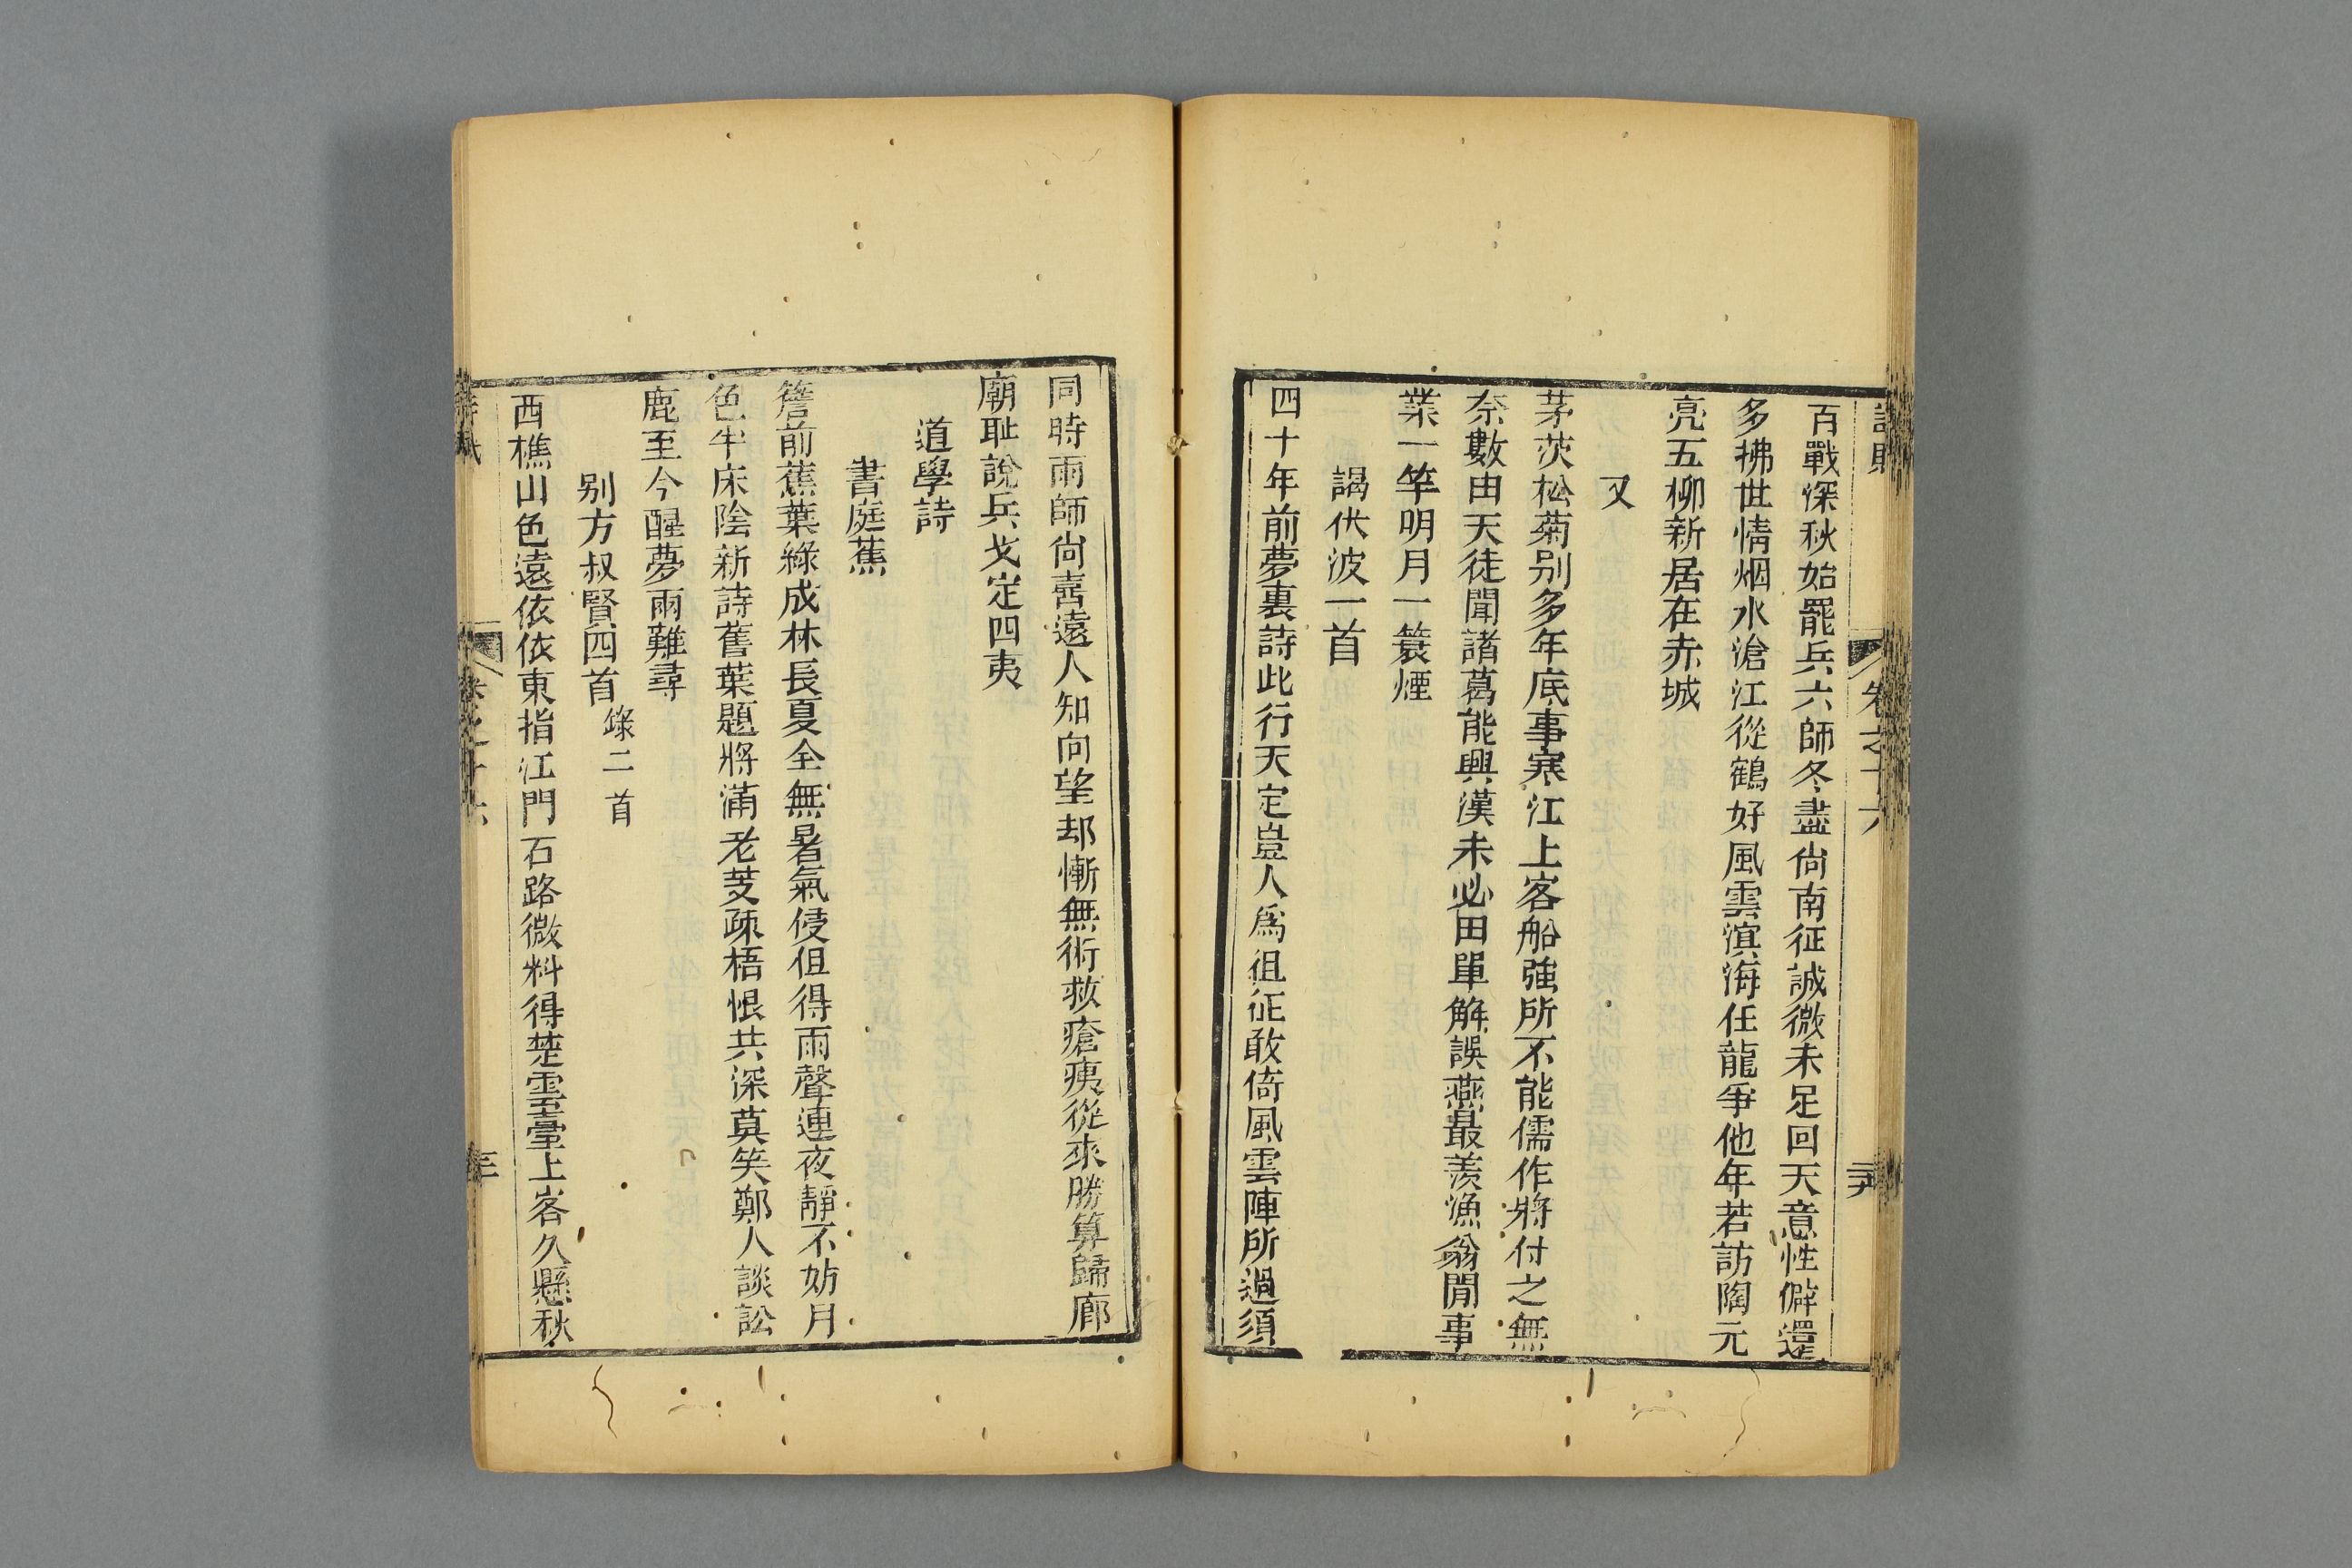 百戰深秋始罷兵六師冬盡尚南征誠微未足回天意性僻還
多拂世情烟水滄江從鶴好風雲溟海任龍爭他年若訪陶元
亮五柳新居在赤城
又
茅茨松菊别多年底事寒江上客船強所不能儒作將付之無
奈數由天徒聞諸葛能興漢未必田單解誤燕最羨漁翁閒事
業一竿明月一簑煙
謁伏波一首
四十年前夢裏詩此行天定豈人爲徂征敢倚風雲陣所過須
同時雨師尚喜遠人知向望却慚無術救瘡痍從來勝算歸廊
廟耻說兵戈定四夷
道學詩
書庭蕉
簷前蕉葉綠成林長夏全無暑氣侵但得雨聲連夜靜不妨月
色半床陰新詩舊葉題將滿老芰疎梧恨共深莫笑鄭人談訟
鹿至今醒夢兩難尋
别方叔賢四首 錄二首
西樵山色遠依依東指江門石路微料得楚雲臺上客久懸秋